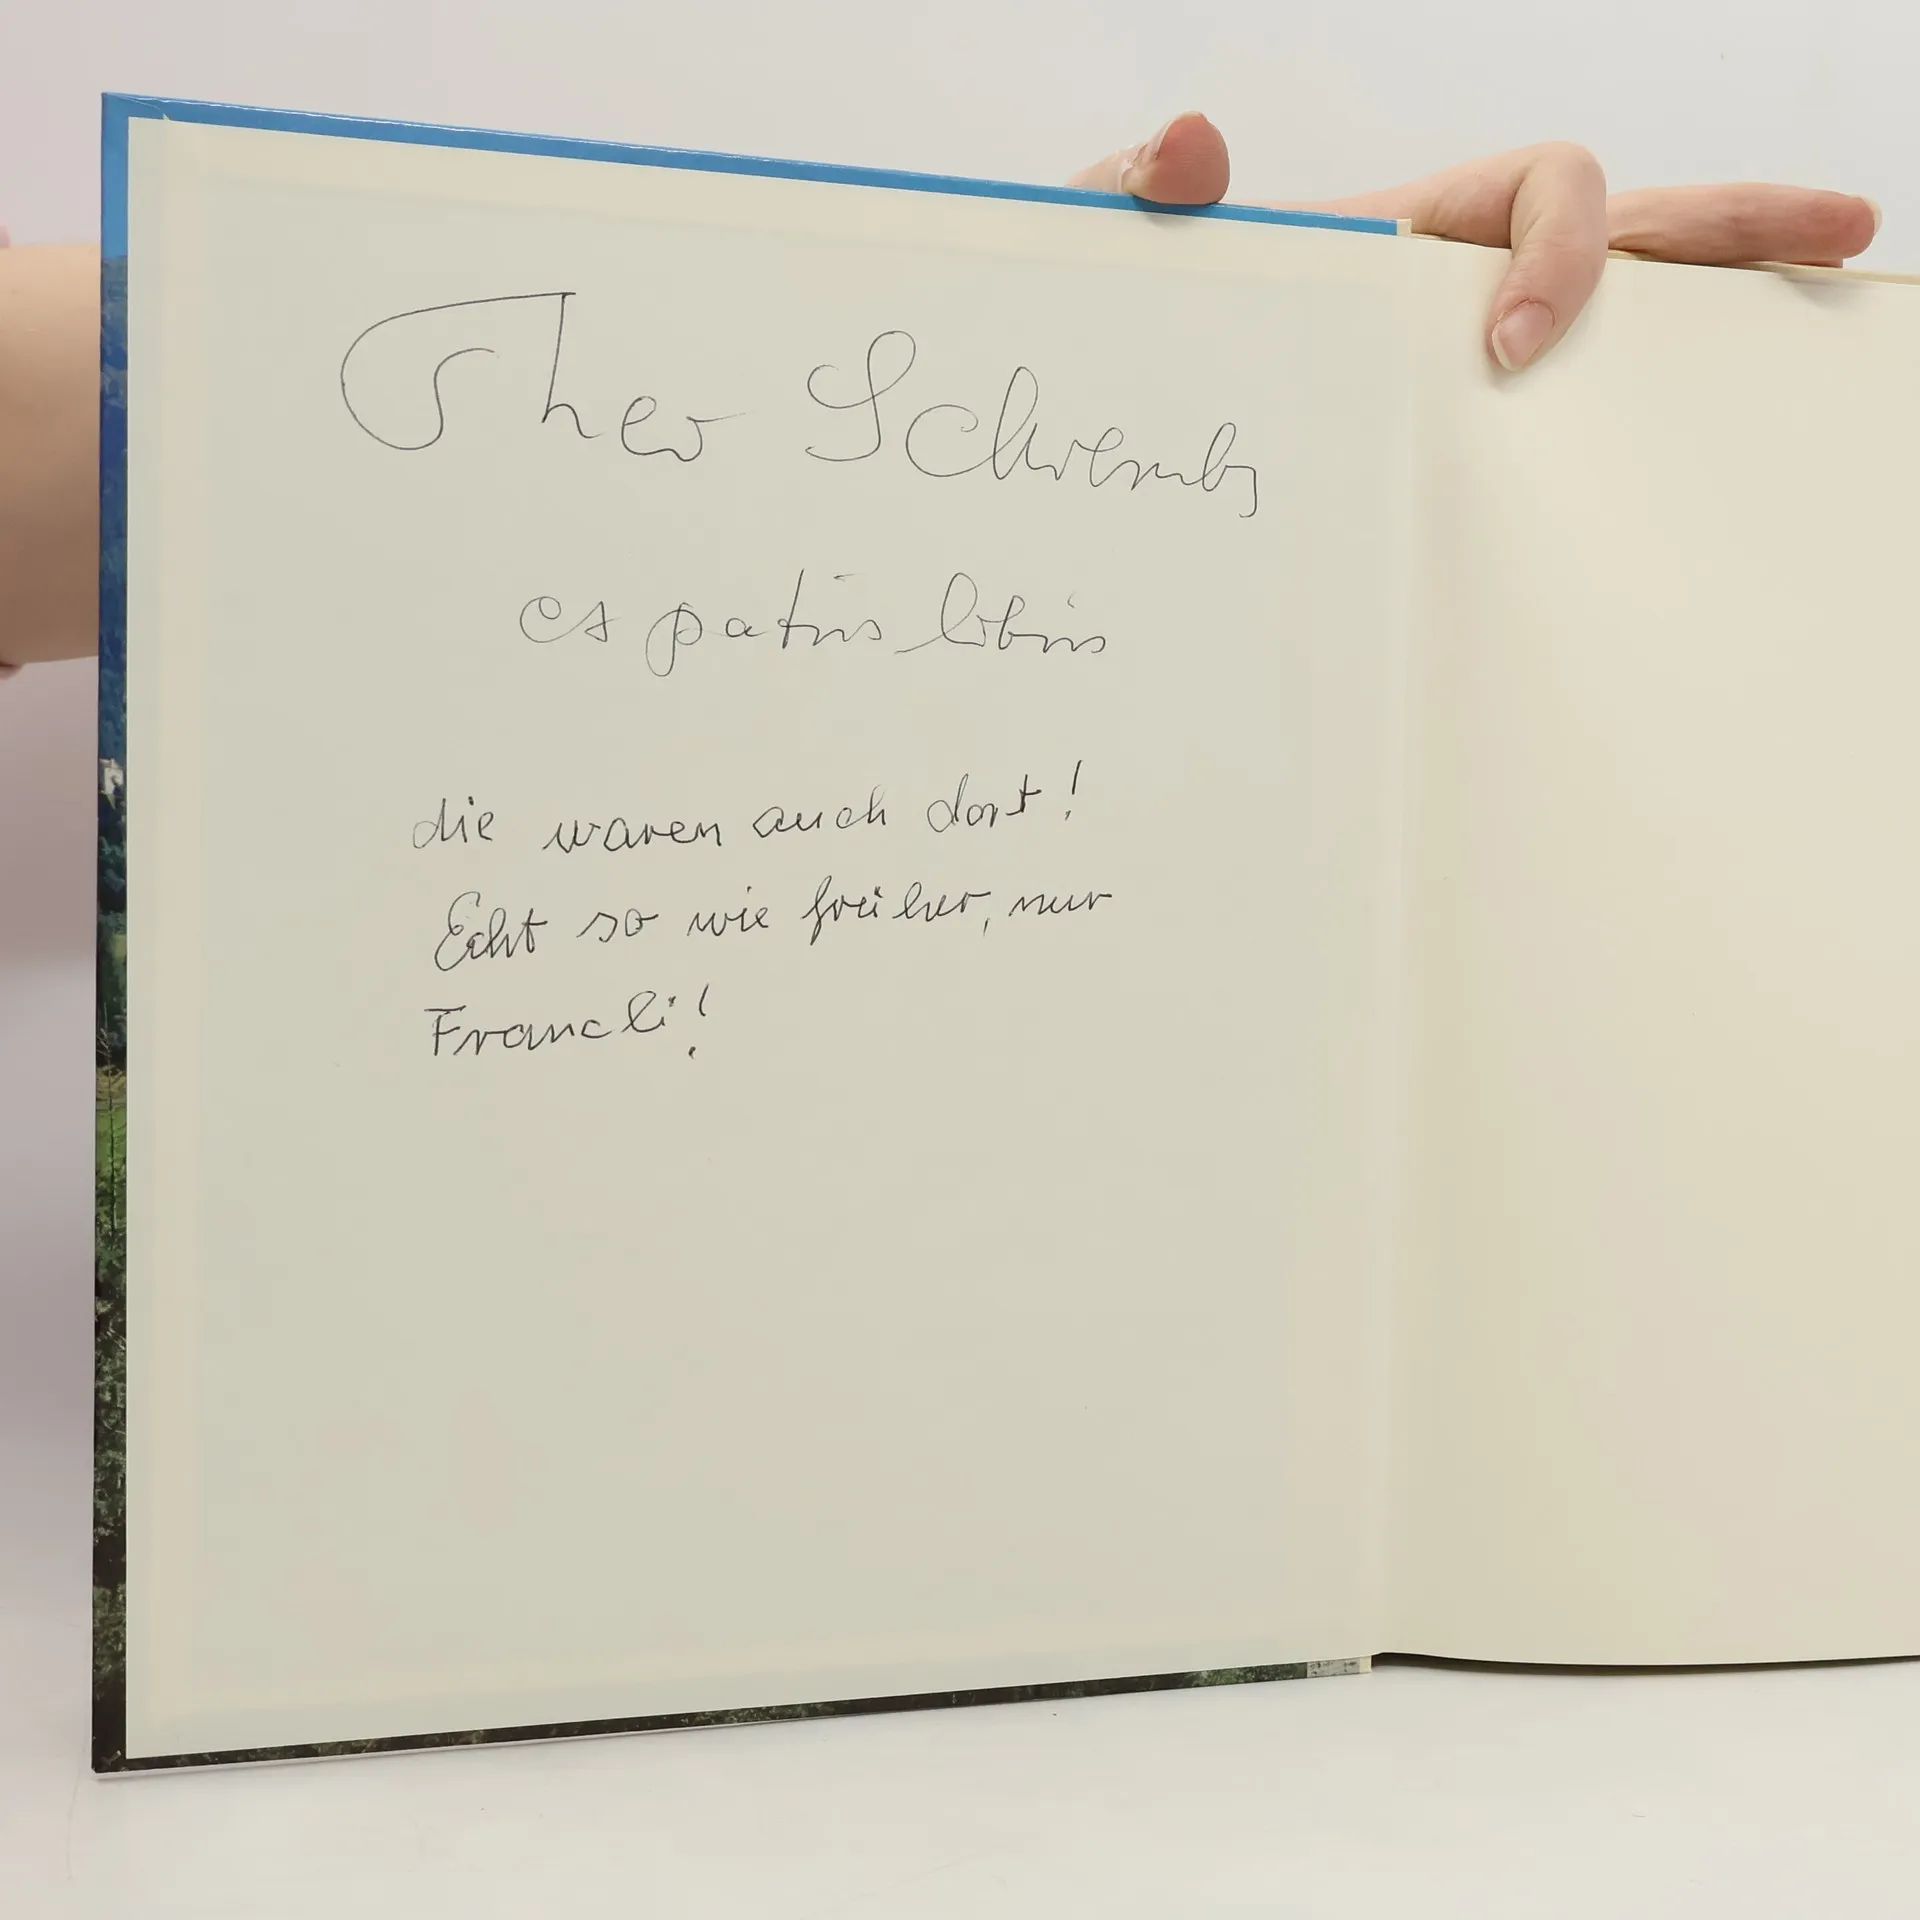 Theo Schremb
es patris
die waren auch dort!
Echt so wie früher, nur
Francli!